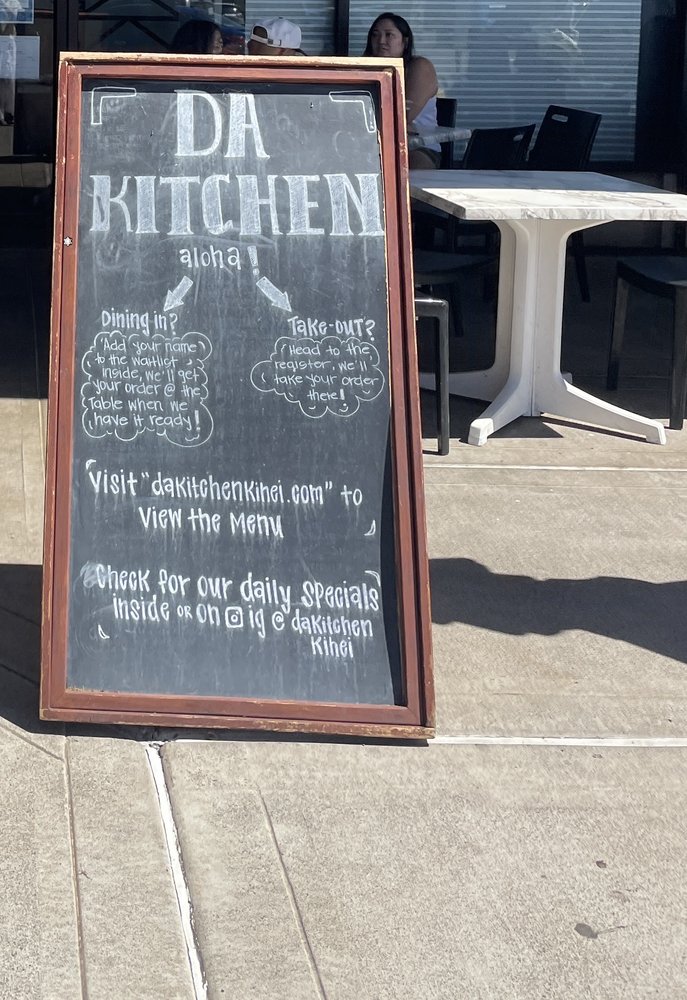 DA
KITCHEN
aloha!
Dining in?
Add your name
to the waitlist
inside, we'll get
your order @ the
table when we
have it ready!
Take-out?
Head to the
register, we'll
take your order
there!
Visit "dakitchenkihei.com" to
view the Menu
Check for our daily specials
inside or on ig @ dakitchen
Kihei